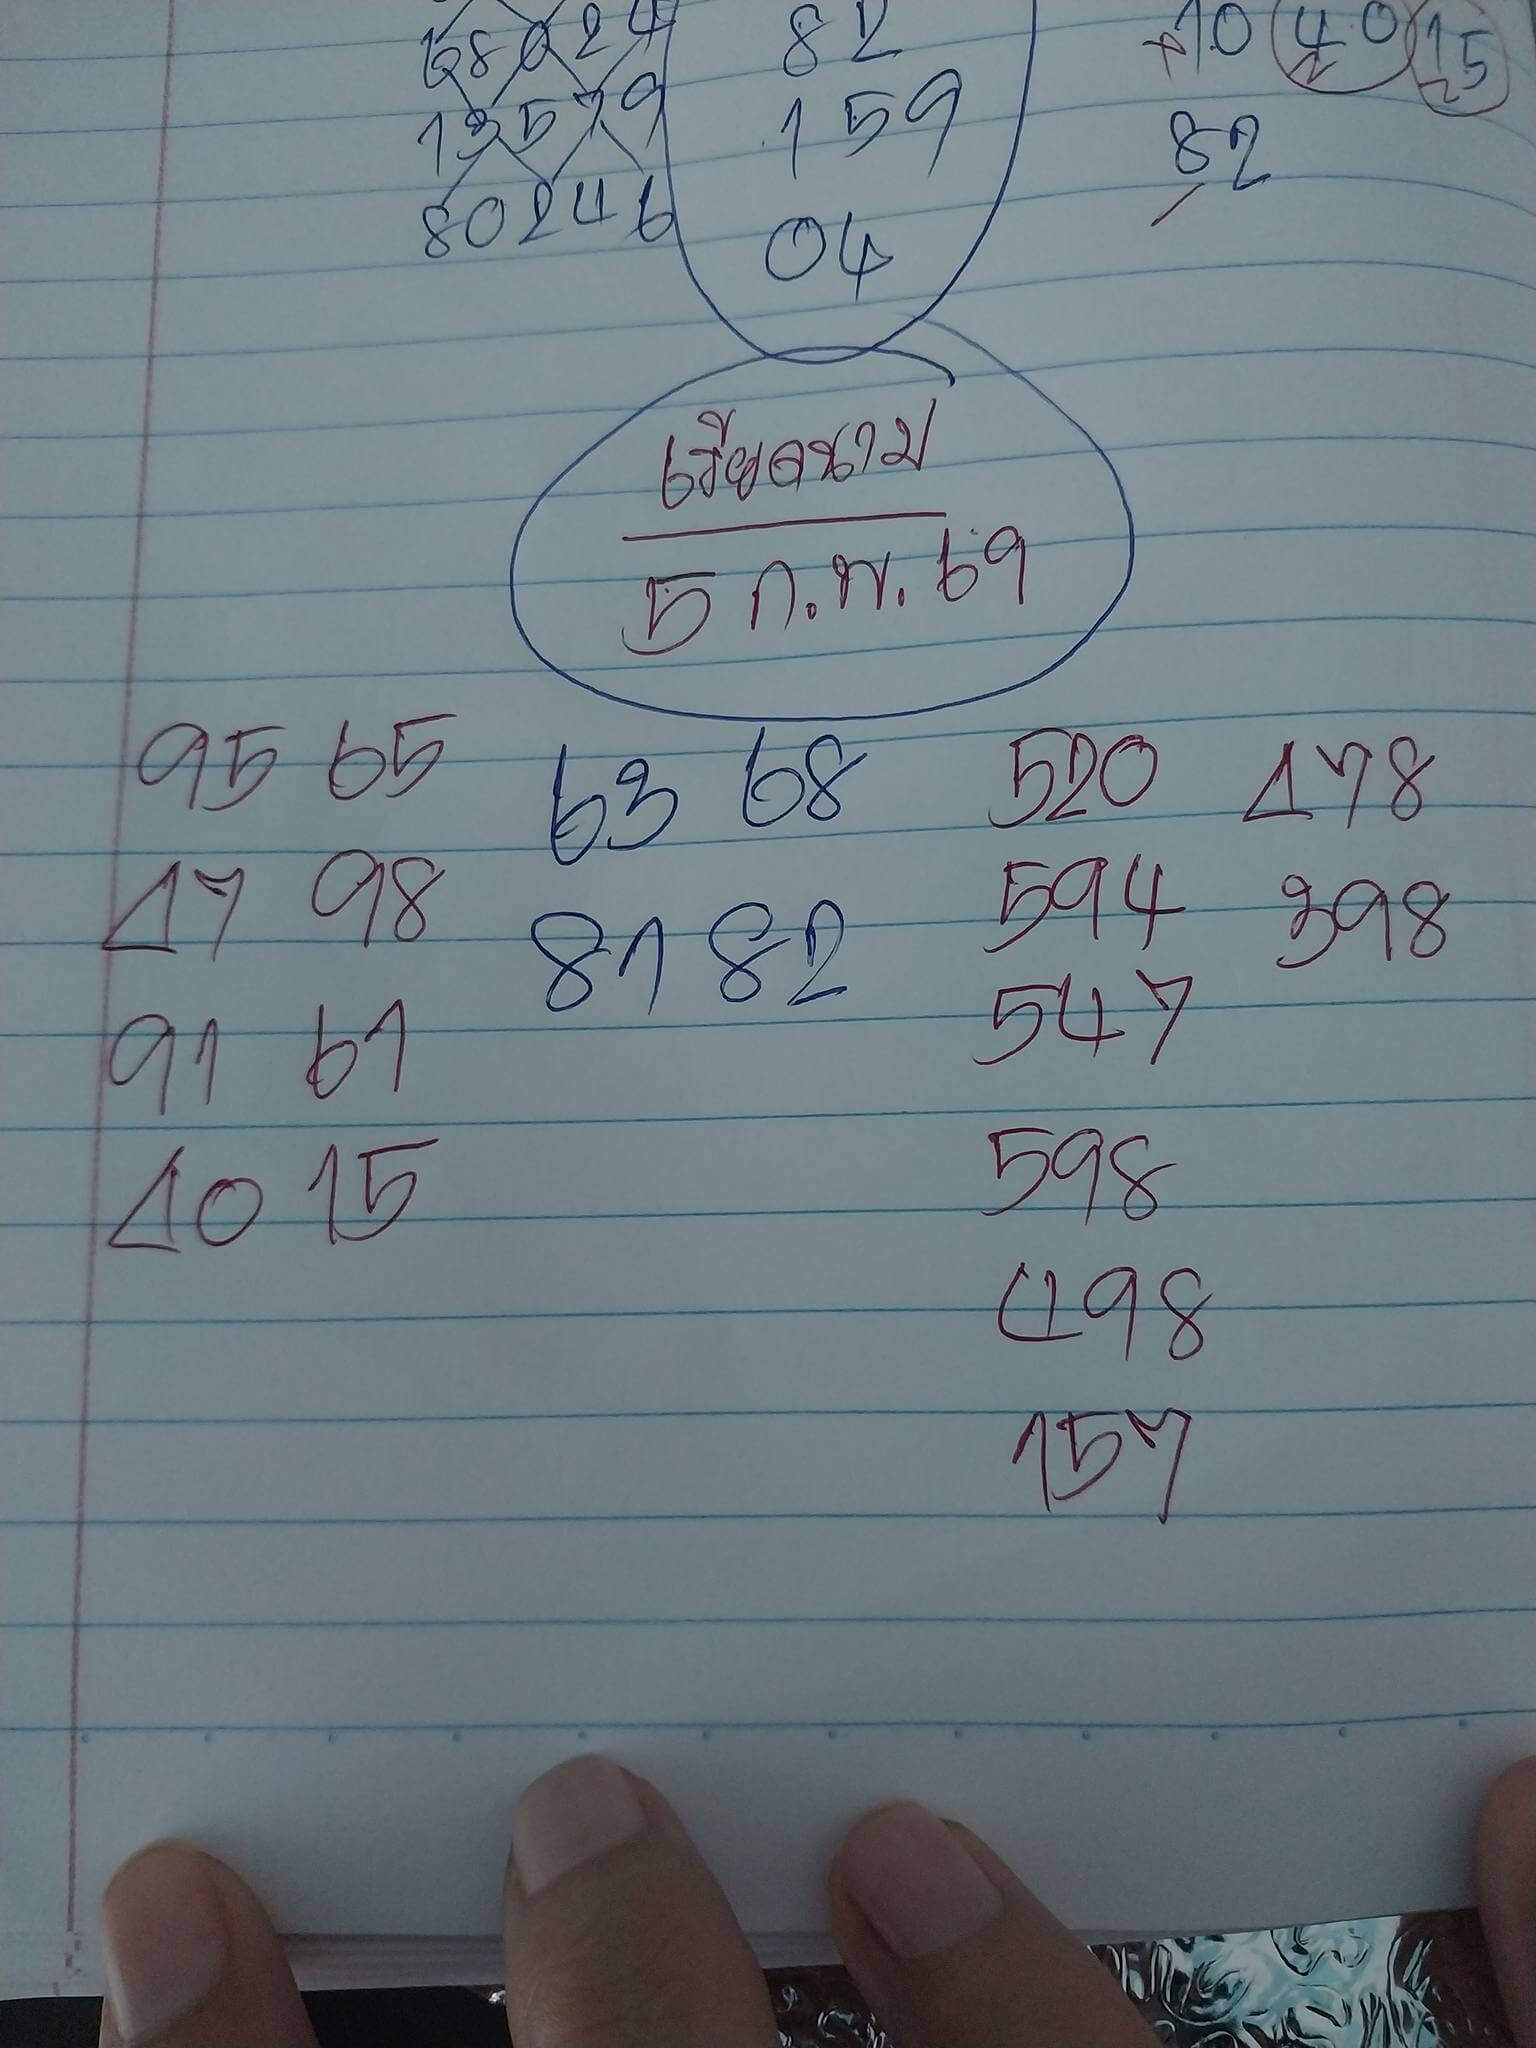 68024 82 10 40 15
13579 159 82
80246 04
เวียดนาม
5 ก.พ. 69
95 65 63 68 520 478
47 98 81 82 594 398
91 61 547
40 15 598
498
157